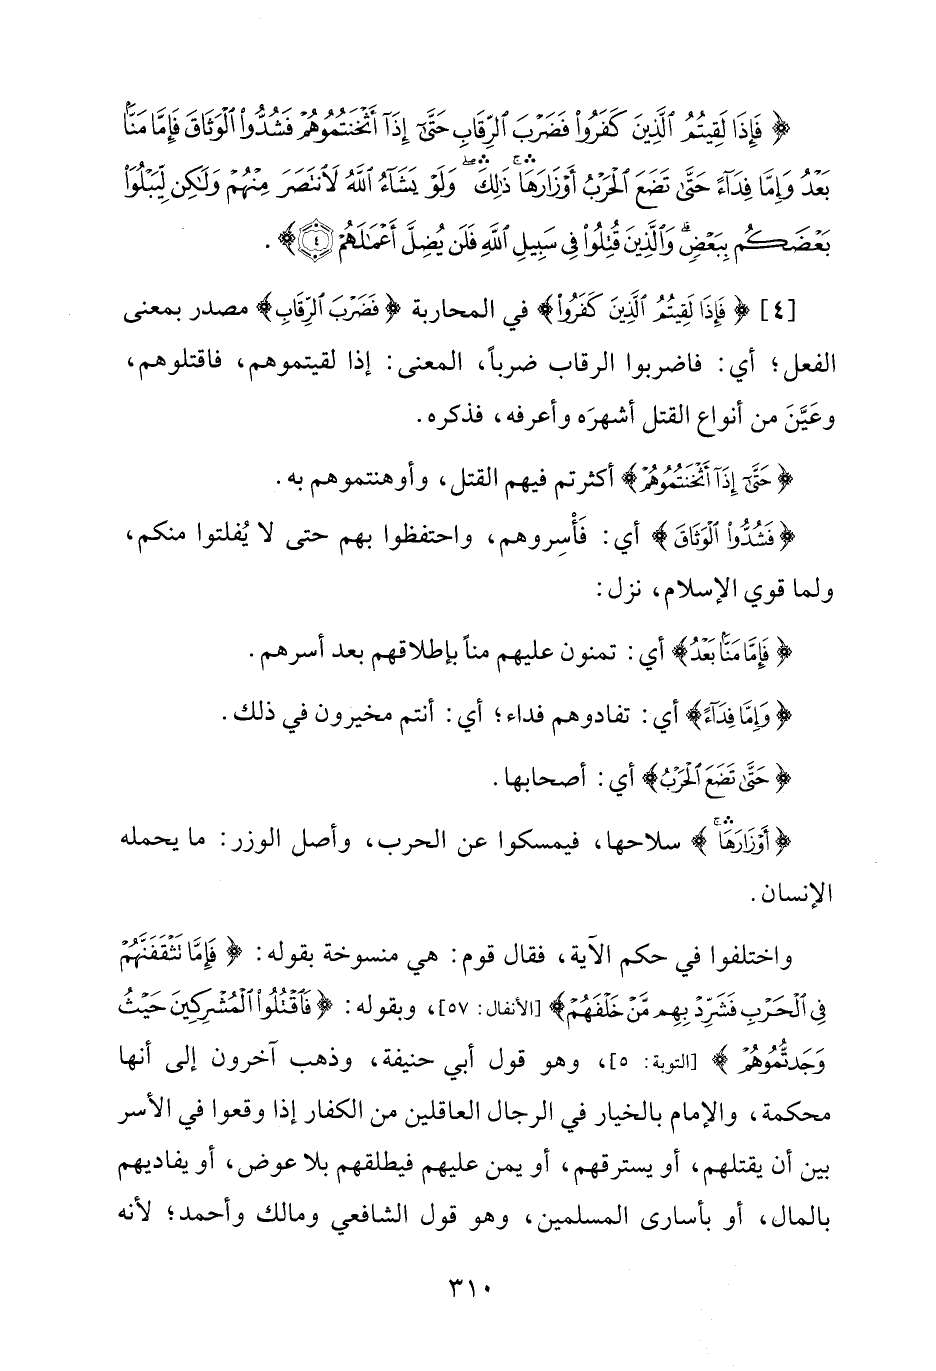 ﴿ فَإِذَا لَقِيتُمُ ٱلَّذِينَ كَفَرُوا۟ فَضَرْبَ ٱلرِّقَابِ حَتَّىٰٓ إِذَآ أَثْخَنتُمُوهُمْ فَشُدُّوا۟ ٱلْوَثَاقَ فَإِمَّا مَنًّۢا
بَعْدُ وَإِمَّا فِدَآءً حَتَّىٰ تَضَعَ ٱلْحَرْبُ أَوْزَارَهَا ۚ ذَٰلِكَ ۖ وَلَوْ يَشَآءُ ٱللَّهُ لَٱنتَصَرَ مِنْهُمْ وَلَـٰكِن لِّيَبْلُوَا۟
بَعْضَكُم بِبَعْضٍ ۗ وَٱلَّذِينَ قُتِلُوا۟ فِى سَبِيلِ ٱللَّهِ فَلَن يُضِلَّ أَعْمَـٰلَهُمْ ﴿٤﴾ ﴾ .
[٤] ﴿ فَإِذَا لَقِيتُمُ ٱلَّذِينَ كَفَرُوا۟ ﴾ في المحاربة ﴿ فَضَرْبَ ٱلرِّقَابِ ﴾ مصدر بمعنى
الفعل؛ أي: فاضربوا الرقاب ضرباً، المعنى: إذا لقيتموهم، فاقتلوهم،
وعَيَّنَ من أنواع القتل أشهرَه وأعرفه، فذكره.
﴿ حَتَّىٰٓ إِذَآ أَثْخَنتُمُوهُمْ ﴾ أكثرتم فيهم القتل، وأوهنتموهم به.
﴿ فَشُدُّوا۟ ٱلْوَثَاقَ ﴾ أي: فَأْسِروهم، واحتفظوا بهم حتى لا يُفلتوا منكم،
ولما قوي الإسلام، نزل:
﴿ فَإِمَّا مَنًّۢا بَعْدُ ﴾ أي: تمنون عليهم مناً بإطلاقهم بعد أسرهم.
﴿ وَإِمَّا فِدَآءً ﴾ أي: تفادوهم فداء؛ أي: أنتم مخيرون في ذلك.
﴿ حَتَّىٰ تَضَعَ ٱلْحَرْبُ ﴾ أي: أصحابها.
﴿ أَوْزَارَهَا ۚ ﴾ سلاحها، فيمسكوا عن الحرب، وأصل الوزر: ما يحمله
الإنسان.
واختلفوا في حكم الآية، فقال قوم: هي منسوخة بقوله: ﴿ فَإِمَّا تَثْقَفَنَّهُمْ
فِى ٱلْحَرْبِ فَشَرِّدْ بِهِم مَّنْ خَلْفَهُمْ ﴾ [الأنفال: ٥٧]، وبقوله: ﴿ فَٱقْتُلُوا۟ ٱلْمُشْرِكِينَ حَيْثُ
وَجَدتُّمُوهُمْ ﴾ [التوبة: ٥]، وهو قول أبي حنيفة، وذهب آخرون إلى أنها
محكمة، والإمام بالخيار في الرجال العاقلين من الكفار إذا وقعوا في الأسر
بين أن يقتلهم، أو يسترقهم، أو يمن عليهم فيطلقهم بلا عوض، أو يفاديهم
بالمال، أو بأسارى المسلمين، وهو قول الشافعي ومالك وأحمد؛ لأنه
٣١٠